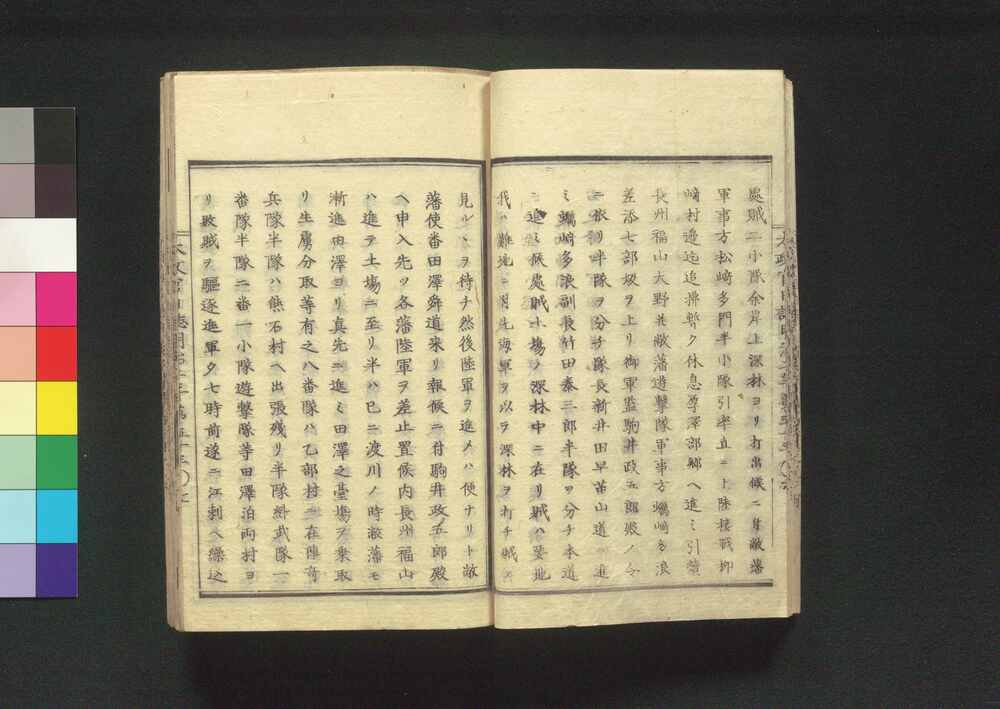 處賊二小隊余岸上深林ヨリ打出候ニ付敝藩
軍事方松崎多門半小隊引率直ニ上陸接戰柳
崎村邊迄追擲暫ク休息厚澤部鄉ヘ進ミ引續
長州福山大野并敝藩遊擊隊軍事方蠣崎多浪
差添七部坂ヲ上リ御軍監駒井政五郎殿ノ令
ニ依リ半隊ヲ分チ隊長新井田早苗山道ニ進
ミ蠣崎多浪副長竹田泰三郎半隊ヲ分チ本道
ニ進ミ候處賊土場ノ深林中ニ在リ賊ハ要地
我ハ難地ニ因先海軍ヲ以ヲ深林ヲ打チ賊
見ルヲ待チ然後陸軍ヲ進メハ便ナリト敝
藩使番田澤舜道来リ報候ニ付駒井政五郎殿
ヘ申入先ツ各藩陸軍ヲ差止置候内長州福山
ハ進テ土場ニ至リ半ハ已ニ渡川ノ時敝藩モ
漸進田澤ヨリ真先ニ進ミ田澤之臺場ヲ乗取
リ生虜分取等有之八番隊ハ乙部村ニ在陣奇
兵隊半隊ハ熊石村ヘ出張殘リ半隊糾武隊一
番隊半隊二番一小隊遊擊隊等田澤泊兩村ヨ
リ敗賊ヲ驅逐進軍夕七時前遂ニ江刺ヘ繰込